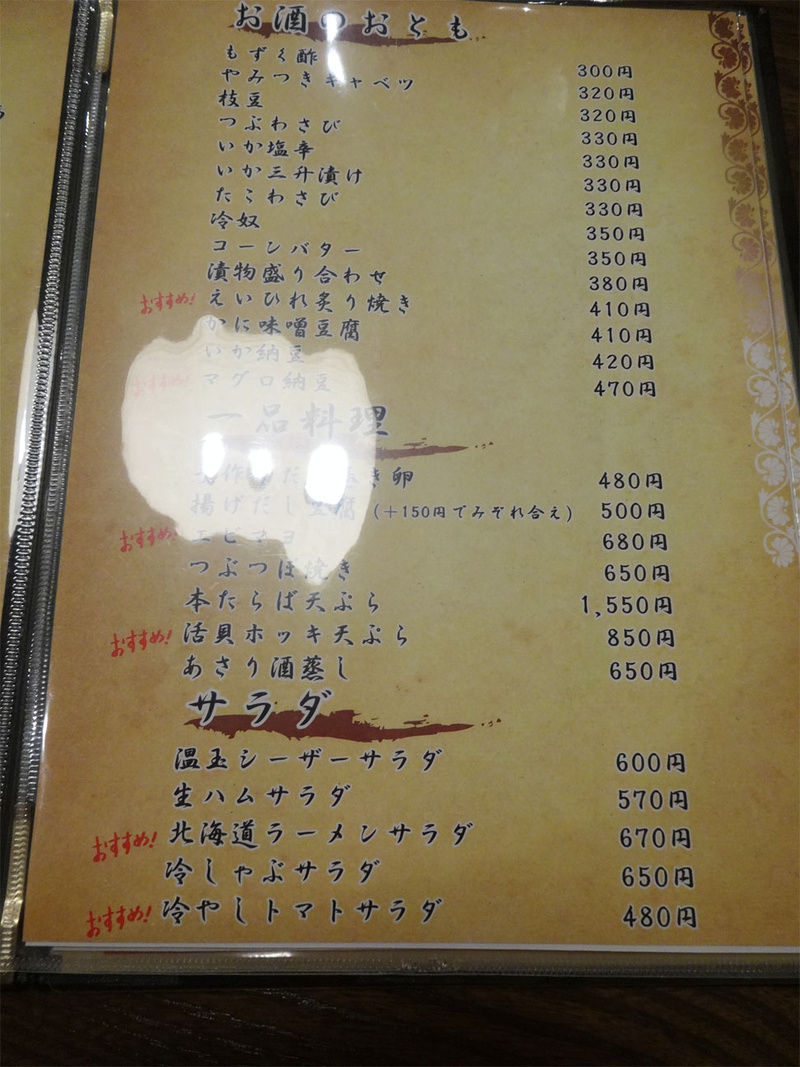 お酒のおとも
もずく酢 300円
やみつきキャベツ 320円
枝豆 320円
つぶわさび 330円
いか塩辛 330円
いか三升漬け 330円
たこわさび 330円
冷奴 350円
コーンバター 350円
漬物盛り合わせ 380円
おすすめ! えいひれ炙り焼き 410円
かに味噌豆腐 410円
いか納豆 420円
おすすめ! マグロ納豆 470円
一品料理
き卵 480円
揚げだし豆腐 (+150円でみぞれ合え) 500円
おすすめ! エビマヨ 680円
つぶつぼ焼き 650円
本たらば天ぷら 1,550円
おすすめ! 活貝ホッキ天ぷら 850円
あさり酒蒸し 650円
サラダ
温玉シーザーサラダ 600円
生ハムサラダ 570円
おすすめ! 北海道ラーメンサラダ 670円
冷しゃぶサラダ 650円
おすすめ! 冷やしトマトサラダ 480円